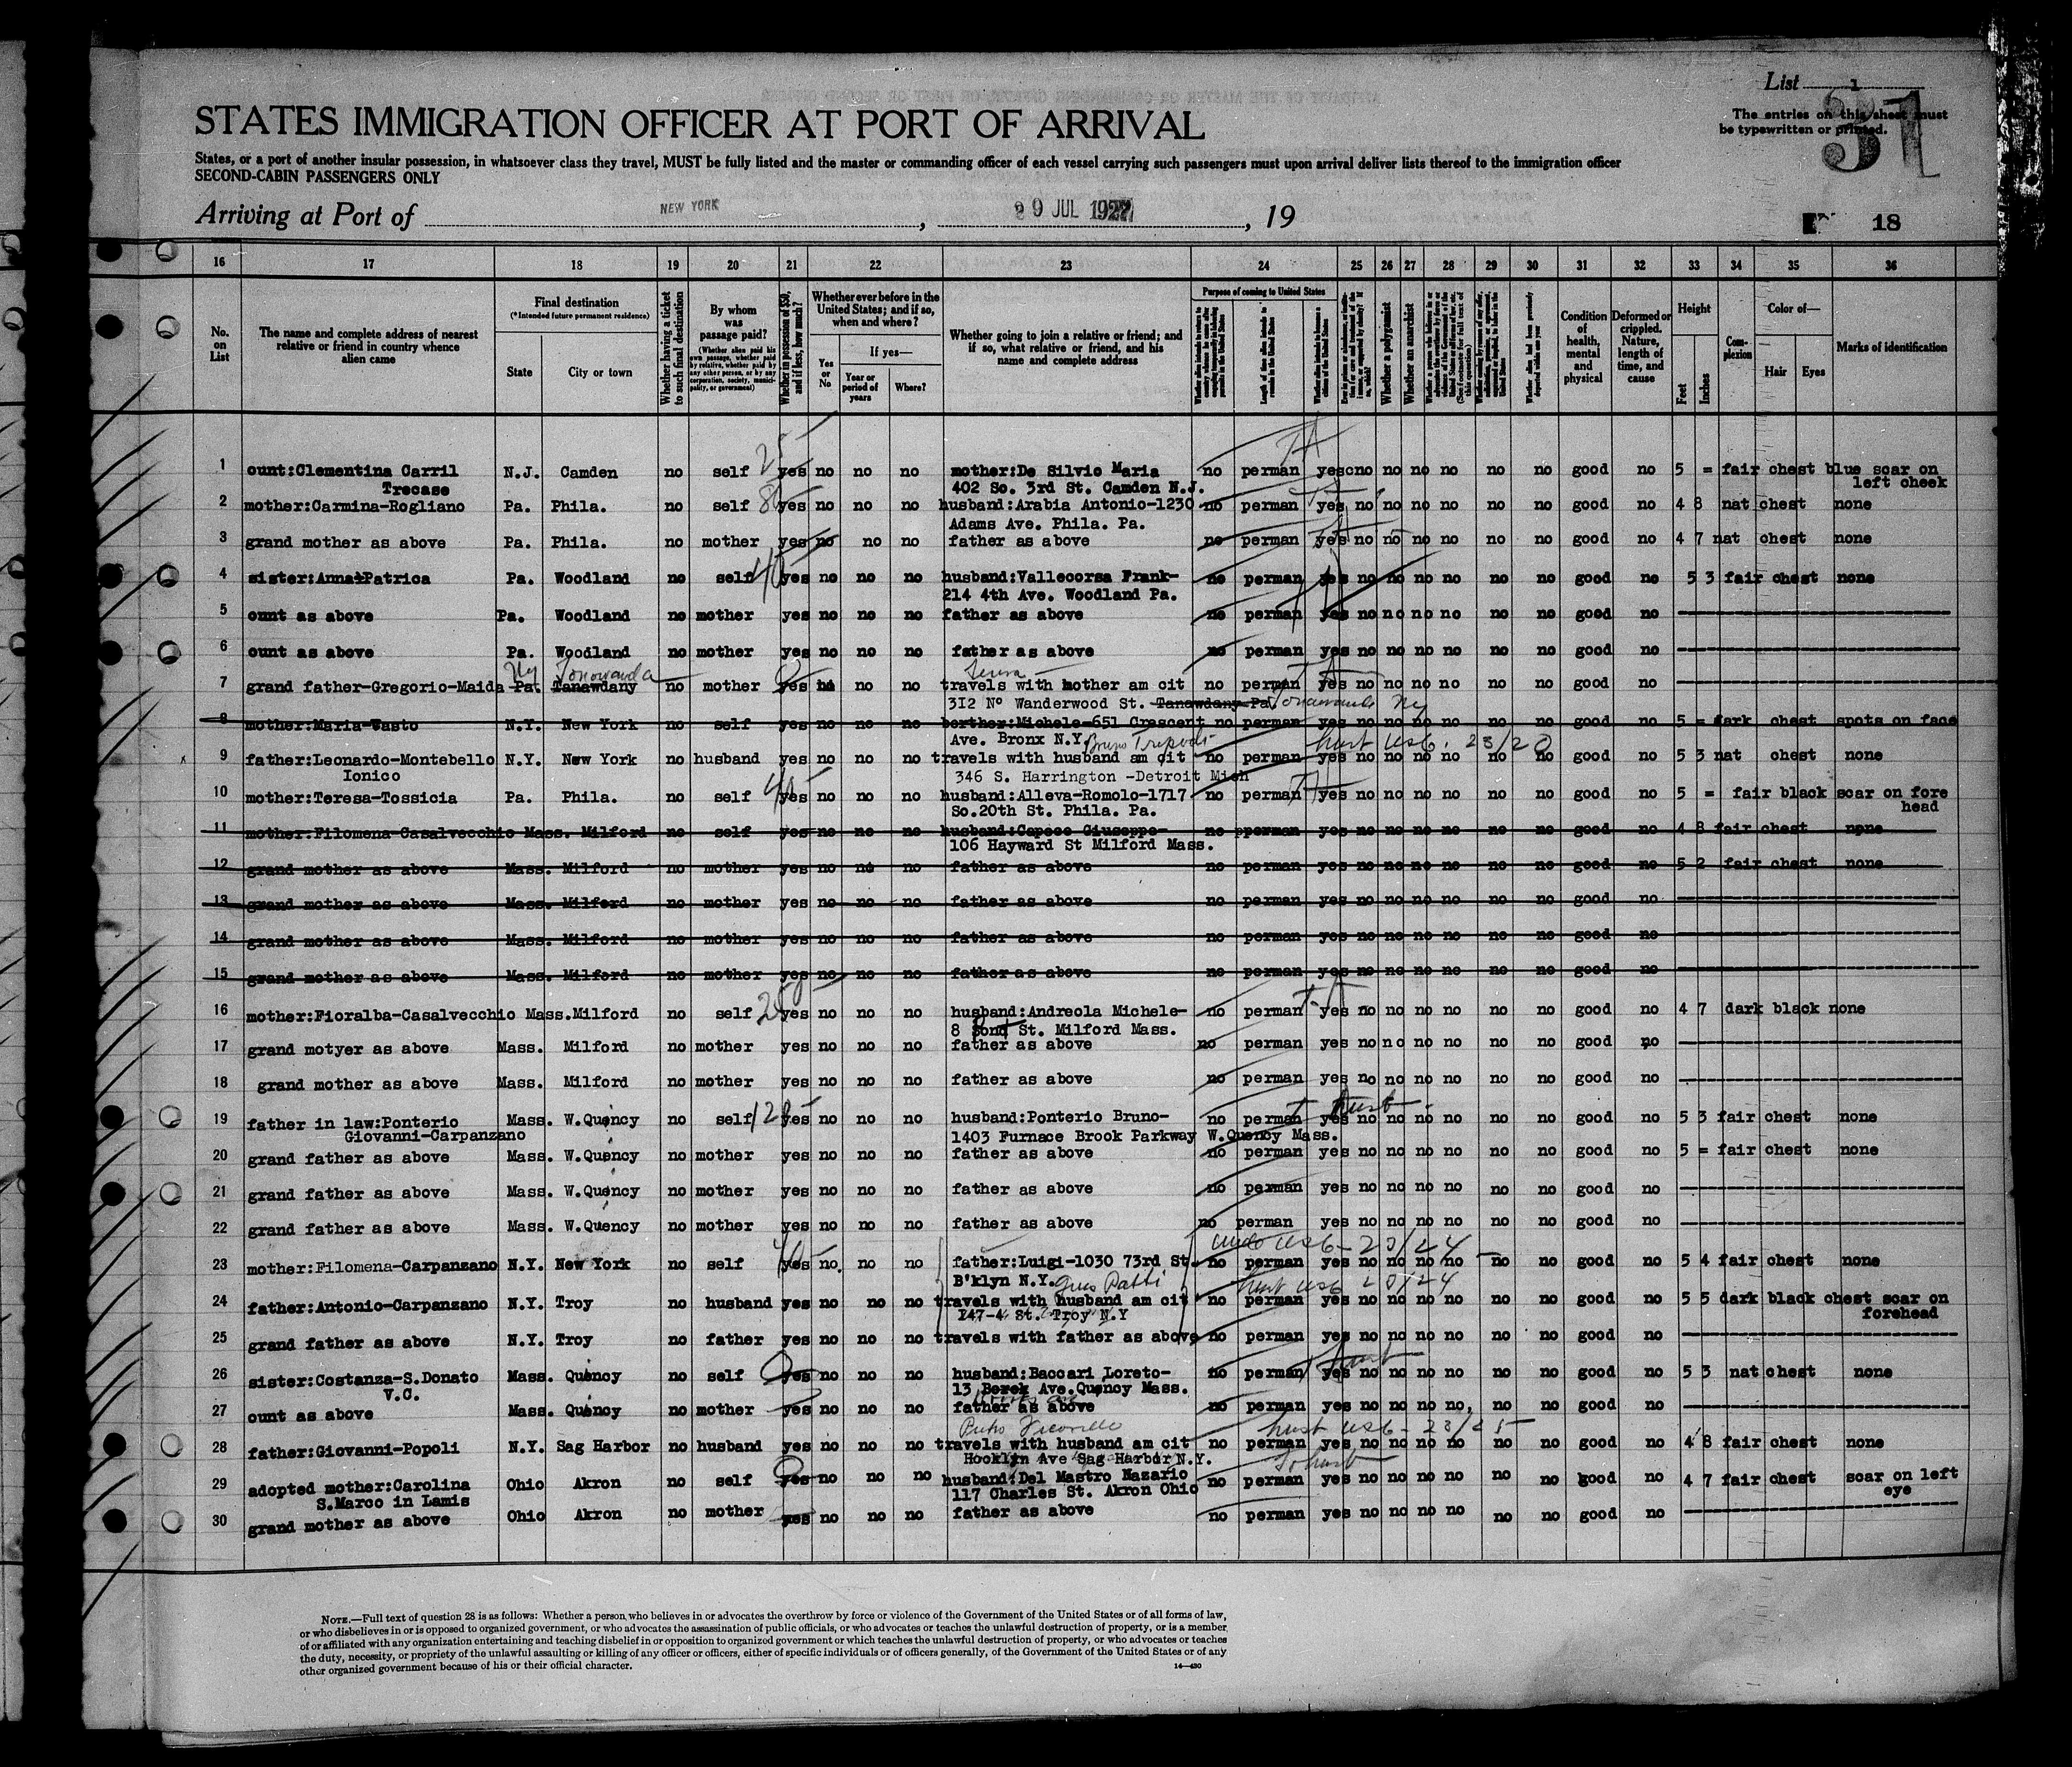 List 1
The entries on this sheet must
be typewritten or printed.
31
STATES IMMIGRATION OFFICER AT PORT OF ARRIVAL
States, or a port of another insular possession, in whatsoever class they travel, MUST be fully listed and the master or commanding officer of each vessel carrying such passengers must upon arrival deliver lists thereof to the immigration officer
SECOND-CABIN PASSENGERS ONLY
Arriving at Port of NEW YORK, 29 JUL 1927, 19
18
16 17 18 19 20 21 22 23 24 25 26 27 28 29 30 31 32 33 34 35 36
No. on List
The name and complete address of nearest relative or friend in country whence alien came
Final destination
(*Intended future permanent residence)
State
City or town
Whether having a ticket to such final destination
By whom was passage paid?
(Whether alien paid his own passage, whether paid by relative, whether paid by any other person, or by any corporation, society, municipality, or government)
Whether in possession of $50, and if less, how much?
Whether ever before in the United States; and if so, when and where?
Yes or No
If yes—
Year or period of years
Where?
Whether going to join a relative or friend; and if so, what relative or friend, and his name and complete address
Purpose of coming to United States
Length of time alien intends to remain in the United States
Whether alien intends to become a citizen of the United States
Whether a polygamist
Whether an anarchist
Condition of health, mental and physical
Deformed or crippled. Nature, length of time, and cause
Height
Feet
Inches
Complexion
Color of—
Hair
Eyes
Marks of identification
1 ount:Clementina Carril N.J. Camden no self 25 yes no no no mother:De Silvio Maria no perman yes no no no no no no good no 5 = fair chest blue scar on
Trecase 402 So. 3rd St. Camden N.J. left cheek
2 mother:Carmina-Rogliano Pa. Phila. no self yes no no no husband:Arabia Antonio-1230 no perman yes no no no no no no good no 4 8 nat chest none
Adams Ave. Phila. Pa.
3 grand mother as above Pa. Phila. no mother yes no no no father as above no perman yes no no no no no no good no 4 7 nat chest none
4 sister:Anna Patrica Pa. Woodland no self 40 yes no no no husband:Vallecorsa Frank- no perman yes no no no no no no good no 5 3 fair chest none
214 4th Ave. Woodland Pa.
5 ount as above Pa. Woodland no mother yes no no no father as above no perman yes no no no no no no good no
6 ount as above Pa. Woodland no mother yes no no no father as above no perman yes no no no no no no good no
Ny Tonowanda
7 grand father-Gregorio-Maida Pa. Tanawdany no mother yes no no no travels with mother am cit no perman yes no no no no no no good no
312 N° Wanderwood St. Tanawdany-Pa. Tonawanda Ny
8 mother:Maria-Vasto N.Y. New York no self yes no no no borther:Michele-651 Crescent no perman yes no no no no no no good no 5 = dark chest spots on face
Ave. Bronx N.Y. Bruno Tripodi husb USC. 23/20
9 father:Leonardo-Montebello N.Y. New York no husband yes no no no travels with husband am cit no perman yes no no no no no no good no 5 3 nat chest none
Ionico 346 S. Harrington -Detroit Mich
10 mother:Teresa-Tossicia Pa. Phila. no self 40 yes no no no husband:Alleva-Romolo-1717 no perman yes no no no no no no good no 5 = fair black scar on fore
So.20th St. Phila. Pa. head
11 mother:Filomena-Casalvecchio Mass. Milford no self yes no no no husband:Capece Giuseppe- no pperman yes no no no no no no good no 4 8 fair chest none
106 Hayward St Milford Mass.
12 grand mother as above Mass. Milford no mother yes no no no father as above no perman yes no no no no no no good no 5 2 fair chest none
13 grand mother as above Mass. Milford no mother yes no no no father as above no perman yes no no no no no no good no
14 grand mother as above Mass. Milford no mother yes no no no father as above no perman yes no no no no no no good no
15 grand mother as above Mass. Milford no mother yes no no no father as above no perman yes no no no no no no good no
16 mother:Fioralba-Casalvecchio Mass.Milford no self yes no no no husband:Andreola Michele- no perman yes no no no no no no good no 4 7 dark black none
8 Bond St. Milford Mass.
17 grand motyer as above Mass. Milford no mother yes no no no father as above no perman yes no no no no no no good no
18 grand mother as above Mass. Milford no mother yes no no no father as above no perman yes no no no no no no good no
19 father in law:Ponterio Mass. W.Quency no self yes no no no husband:Ponterio Bruno- no perman yes no no no no no no good no 5 3 fair chest none
Giovanni-Carpanzano 1403 Furnace Brook Parkway W.Quency Mass.
20 grand father as above Mass. W.Quency no mother yes no no no father as above no perman yes no no no no no no good no 5 = fair chest none
21 grand father as above Mass. W.Quency no mother yes no no no father as above no perman yes no no no no no no good no
22 grand father as above Mass. W.Quency no mother yes no no no father as above no perman yes no no no no no no good no
USC - 23/24
23 mother:Filomena-Carpanzano N.Y. New York no self yes no no no father:Luigi-1030 73rd St. no perman yes no no no no no no good no 5 4 fair chest none
B'klyn N.Y. Gus Patti husb USC 23/24
24 father:Antonio-Carpanzano N.Y. Troy no husband yes no no no travels with husband am cit no perman yes no no no no no no good no 5 5 dark black chest scar on
247-4 St. Troy N.Y forehead
25 grand father as above N.Y. Troy no father yes no no no travels with father as above no perman yes no no no no no no good no
26 sister:Costanza-S.Donato Mass. Quency no self yes no no no husband:Baccari Loreto- no perman yes no no no no no no good no 5 3 nat chest none
V.C. 13 Berek Ave.Quency Mass.
27 ount as above Mass. Quency no mother yes no no no father as above no perman yes no no no no no no good no
husb USC - 23/25
28 father:Giovanni-Popoli N.Y. Sag Harbor no husband yes no no no travels with husband am cit no perman yes no no no no no no good no 4 8 fair chest none
Hocklyn Ave Sag Harbor N.Y.
29 adopted mother:Carolina Ohio Akron no self yes no no no husband:Del Mastro Nazario no perman yes no no no no no no good no 4 7 fair chest scar on left
S.Marco in Lamis 117 Charles St. Akron Ohio eye
30 grand mother as above Ohio Akron no mother yes no no no father as above no perman yes no no no no no no good no
NOTE.—Full text of question 28 is as follows: Whether a person who believes in or advocates the overthrow by force or violence of the Government of the United States or of all forms of law,
or who disbelieves in or is opposed to organized government, or who advocates the assassination of public officials, or who advocates or teaches the unlawful destruction of property, or is a member
of or affiliated with any organization entertaining and teaching disbelief in or opposition to organized government or which teaches the unlawful destruction of property, or who advocates or teaches
the duty, necessity, or propriety of the unlawful assaulting or killing of any officer or officers, either of specific individuals or of officers generally, of the Government of the United States or of any
other organized government because of his or their official character.
14—430